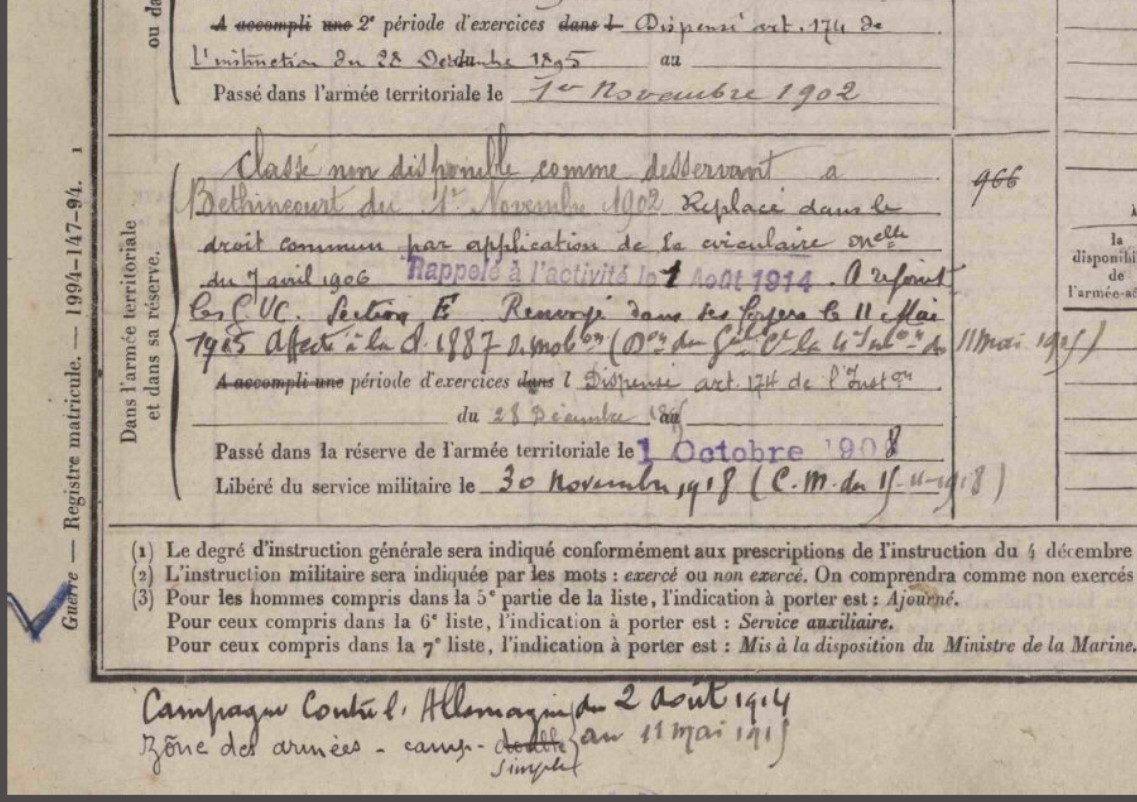 ou da
A accompli une 2e période d'exercices dans l Dispensé art. 174 de
l'instruction du 28 Décembre 1895 au
Passé dans l'armée territoriale le 1er Novembre 1902
Classé non disponible comme desservant à
Bethincourt du 1er Novembre 1902 Replacé dans le
droit commun par application de la circulaire melle
du 7 avril 1906 Rappelé à l'activité le 1 Août 1914. A rejoint
les C.V.C. Section E Renvoyé dans ses foyers le 11 Mai
1915 Affecté à la cl. 1887 de mobon (Don du Gal Ct la 4e Subon du 11 mai 1915)
A accompli une période d'exercices dans l Dispensé art. 174 de l'Inston
du 28 Décembre 1895 au
Passé dans la réserve de l'armée territoriale le 1 Octobre 1908
Libéré du service militaire le 30 novembre 1918 (C.M. du 15-11-1918)
Dans l'armée territoriale
et dans sa réserve.
966
la
disponibi
de
l'armée-a
Guerre — Registre matricule. — 1994-147-94. 1
(1) Le degré d'instruction générale sera indiqué conformément aux prescriptions de l'instruction du 4 décembre
(2) L'instruction militaire sera indiquée par les mots : exercé ou non exercé. On comprendra comme non exercés
(3) Pour les hommes compris dans la 5e partie de la liste, l'indication à porter est : Ajourné.
Pour ceux compris dans la 6e liste, l'indication à porter est : Service auxiliaire.
Pour ceux compris dans la 7e liste, l'indication à porter est : Mis à la disposition du Ministre de la Marine.
Campagne Contre l'Allemagne du 2 août 1914
Zône des armées - camp- double au 11 mai 1915
simple